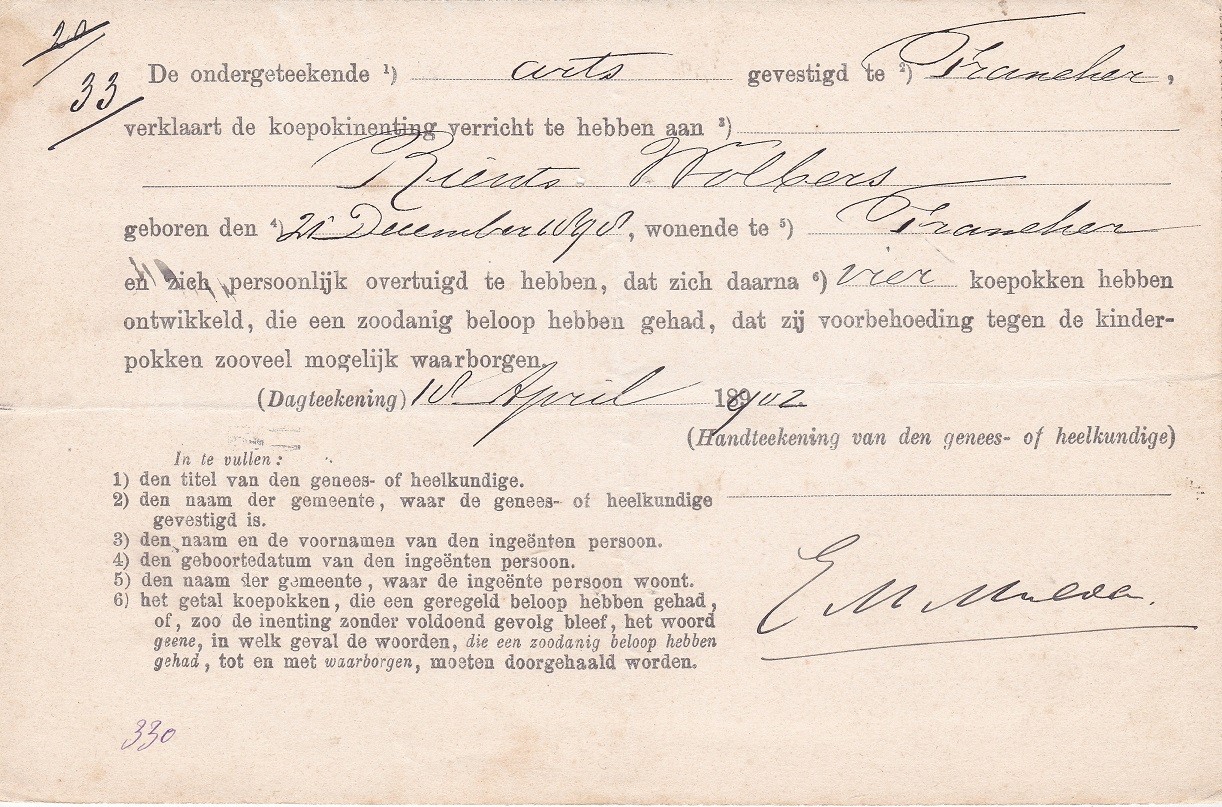 20
33
De ondergeteekende ¹) arts gevestigd te ²) Franeker,
verklaart de koepokinenting verricht te hebben aan ³)
Rients Wolbers
geboren den ⁴) 21 December 1898, wonende te ⁵) Franeker
en zich persoonlijk overtuigd te hebben, dat zich daarna ⁶) vier koepokken hebben
ontwikkeld, die een zoodanig beloop hebben gehad, dat zij voorbehoeding tegen de kinder-
pokken zooveel mogelijk waarborgen.
(Dagteekening) 18 April 1902
(Handteekening van den genees- of heelkundige)
In te vullen:
1) den titel van den genees- of heelkundige.
2) den naam der gemeente, waar de genees- of heelkundige
gevestigd is.
3) den naam en de voornamen van den ingeënten persoon.
4) den geboortedatum van den ingeënten persoon.
5) den naam der gemeente, waar de ingeënte persoon woont.
6) het getal koepokken, die een geregeld beloop hebben gehad,
of, zoo de inenting zonder voldoend gevolg bleef, het woord
geene, in welk geval de woorden, die een zoodanig beloop hebben
gehad, tot en met waarborgen, moeten doorgehaald worden.
E M Mulder.
330